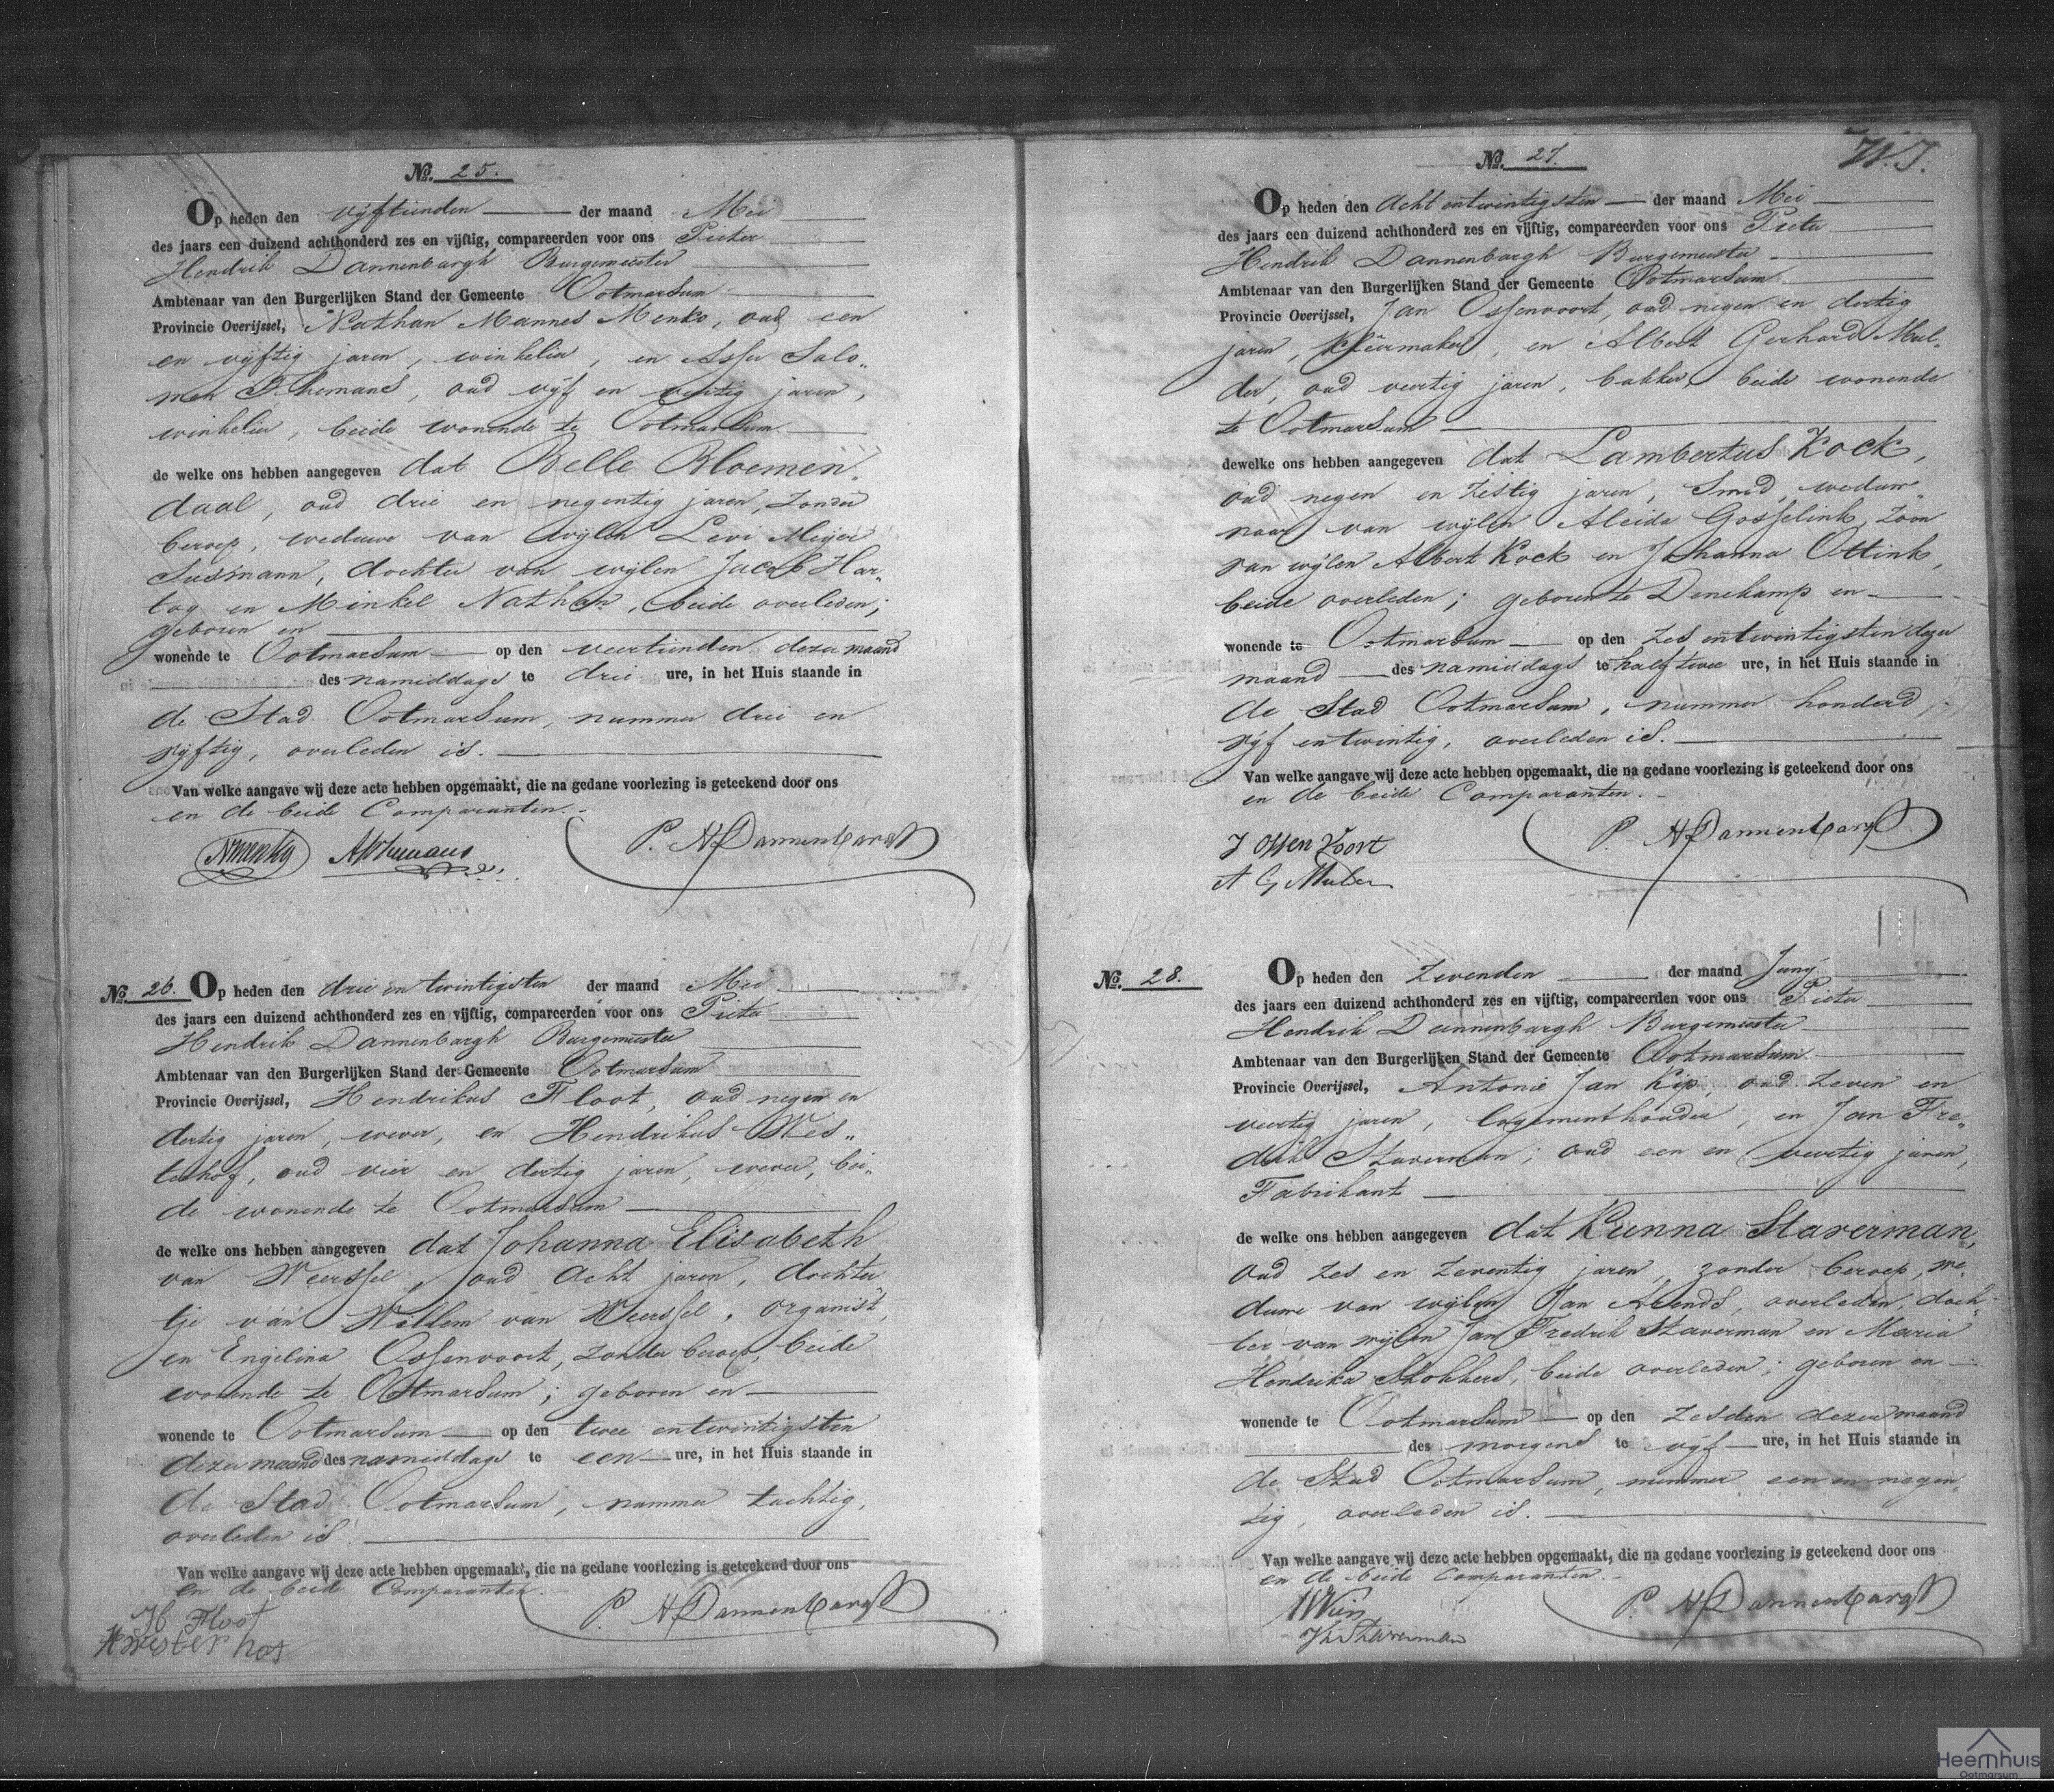 No. 25.
Op heden den vijftienden der maand Mei
des jaars een duizend achthonderd zes en vijftig, compareerden voor ons Pieter
Hendrik Dannenbargh Burgemeester
Ambtenaar van den Burgerlijken Stand der Gemeente Ootmarsum
Provincie Overijssel, Nathan Mannes Menko, oud een
en vijftig jaren, winkelier, en Asser Salo„
mon Themans, oud vijf en veertig jaren,
winkelier, beide wonende te Ootmarsum
de welke ons hebben aangegeven dat Belle Bloemen„
daal, oud drie en negentig jaren, zonder
beroep, weduwe van wijlen Levi Meijer
Susmann, dochter van wijlen Jacob Har„
tog en Minkel Nathan, beide overleden;
geboren en
wonende te Ootmarsum op den veertienden dezer maand
des namiddags te drie ure, in het Huis staande in
de Stad Ootmarsum, nummer drie en
vijftig, overleden is.
Van welke aangave wij deze acte hebben opgemaakt, die na gedane voorlezing is geteekend door ons
en de beide Comparanten.
NMenko ASThemans P. H Dannenbargh
No. 26. Op heden den drie en twintigsten der maand Mei
des jaars een duizend achthonderd zes en vijftig, compareerden voor ons Pieter
Hendrik Dannenbargh Burgemeester
Ambtenaar van den Burgerlijken Stand der Gemeente Ootmarsum
Provincie Overijssel, Hendrikus Floot, oud negen en
dertig jaren, wever, en Hendrikus Wes„
terhof, oud vier en dertig jaren, wever, bei„
de wonende te Ootmarsum
de welke ons hebben aangegeven dat Johanna Elisabeth
van Weerssel, oud acht jaren, dochter
tje van Willem van Weerssel, organist,
en Engelina Ossenvoort, zonder beroep, beide
wonende te Ootmarsum; geboren en
wonende te Ootmarsum op den twee en twintigsten
dezer maand des namiddags te een ure, in het Huis staande in
de Stad Ootmarsum, nummer tachtig,
overleden is
Van welke aangave wij deze acte hebben opgemaakt, die na gedane voorlezing is geteekend door ons
en de beide Comparanten.
H Floot P. H Dannenbargh
H westerhof
No. 27.
Op heden den Acht en twintigsten der maand Mei
des jaars een duizend achthonderd zes en vijftig, compareerden voor ons Pieter
Hendrik Dannenbargh Burgemeester
Ambtenaar van den Burgerlijken Stand der Gemeente Ootmarsum
Provincie Overijssel, Jan Ossenvoort, oud negen en dertig
jaren, kleermaker, en Albert Gerhard Mul„
der, oud veertig jaren, bakker, beide wonende
te Ootmarsum
dewelke ons hebben aangegeven dat Lambertus Kock,
oud negen en zestig jaren, Smid, weduw„
naar van wijlen Aleida Gosselink, zoon
van wijlen Albert Kock en Johanna Ottink,
beide overleden; geboren te Denekamp en
wonende te Ootmarsum op den zes en twintigsten dezer
maand des namiddags te half twee ure, in het Huis staande in
de Stad Ootmarsum, nummer honderd
vijf en twintig, overleden is.
Van welke aangave wij deze acte hebben opgemaakt, die na gedane voorlezing is geteekend door ons
en de beide Comparanten.
J Ossen Voort P. H Dannenbargh
A G Mulder
No. 28. Op heden den zevenden der maand Junij
des jaars een duizend achthonderd zes en vijftig, compareerden voor ons Pieter
Hendrik Dannenbargh Burgemeester
Ambtenaar van den Burgerlijken Stand der Gemeente Ootmarsum
Provincie Overijssel, Antonie Jan Kip, oud zeven en
veertig jaren, logementhouder, en Jan Fre„
derik Staverman, oud een en veertig jaren,
Fabrikant
de welke ons hebben aangegeven dat Kunna Staverman,
oud zes en zeventig jaren, zonder beroep, we„
duwe van wijlen Jan Arends, overleden, doch„
ter van wijlen Jan Fredrik Staverman en Maria
Hendrika Stokkers, beide overleden; geboren en
wonende te Ootmarsum op den zesden dezer maand
des morgens te vijf ure, in het Huis staande in
de Stad Ootmarsum, nummer een en negen„
tig, overleden is.
Van welke aangave wij deze acte hebben opgemaakt, die na gedane voorlezing is geteekend door ons
en de beide Comparanten.
P. H Dannenbargh
Staverman
Heemhuis
Ootmarsum